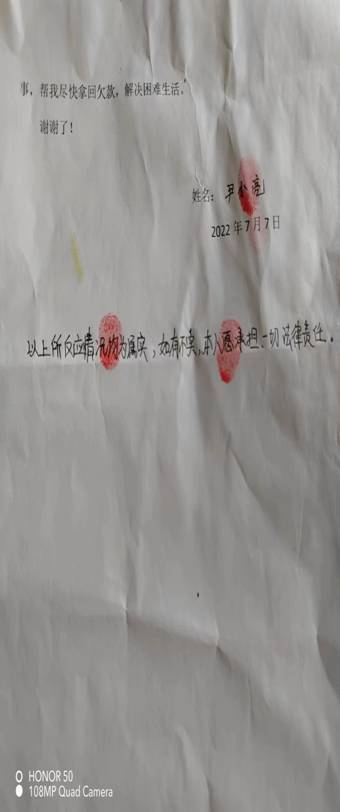 事，帮我尽快拿回欠款，解决困难生活。
谢谢了！
姓名：尹 亮
2022 年 7 月 7 日
以上所反应情况均为属实，如有不实，本人愿承担一切法律责任。
HONOR 50
108MP Quad Camera